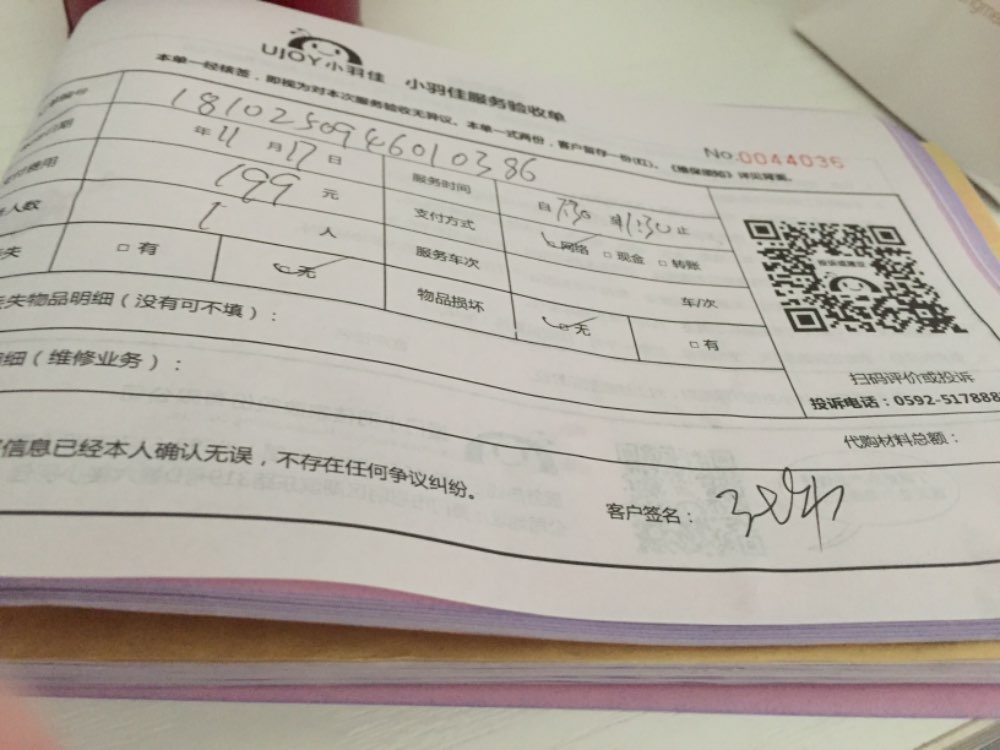 UJOY小羽佳 小羽佳服务验收单
本单一经核签，即视为对本次服务验收无异议。本单一式两份，客户留存一份(红)。《维保须知》详见背面。
No.0044036
1810250946010386
年11月17日 服务时间 自7:30 至11:30止
费用 199 元 支付方式 网络 □现金 □转账
人数 1 人 服务车次 车/次
失 □有 □无 物品损坏 □无 □有
失物品明细（没有可不填）：
细（维修业务）：
投诉或建议
扫码评价或投诉
投诉电话：0592-517888
代购材料总额：
信息已经本人确认无误，不存在任何争议纠纷。
客户签名：